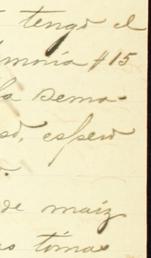 tengo el
moria #15
la sema-
so, espero
de maiz
tóma